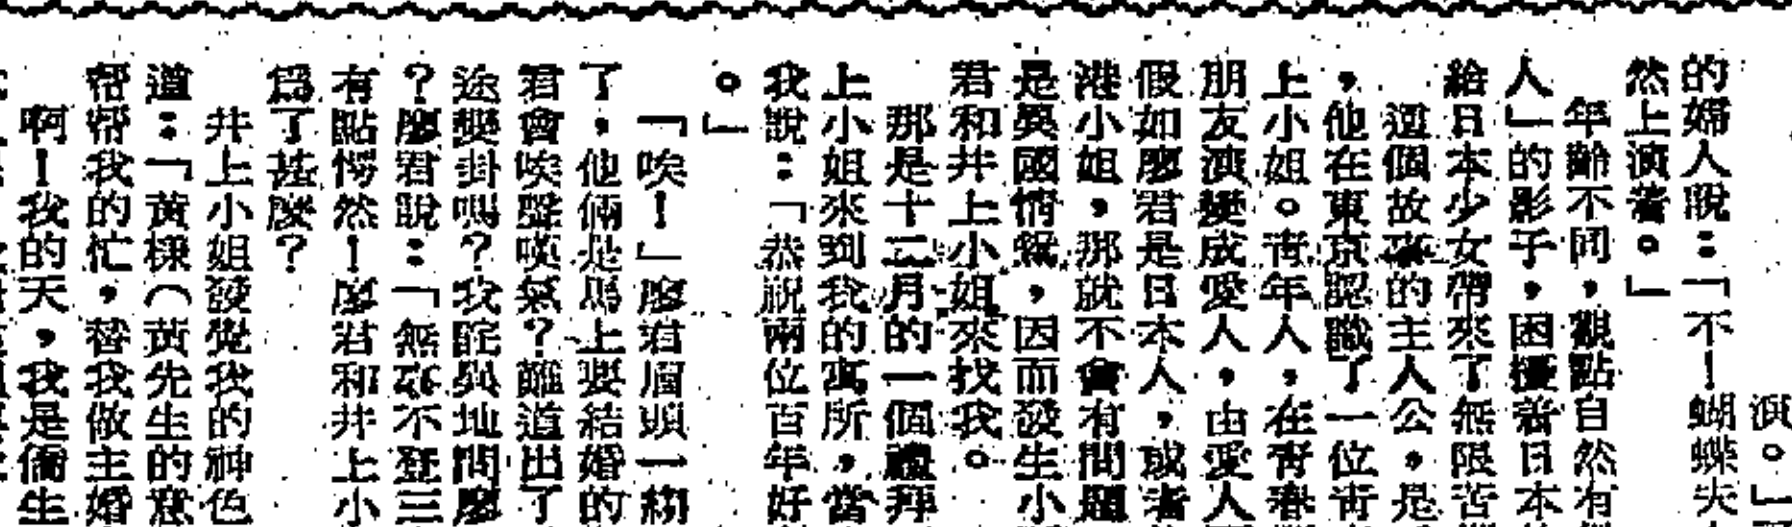 演。」
的婦人說：「不！蝴蝶夫
然上演著。」
年齡不同，觀點自然有
人」的影子，困擾着日本
給日本少女帶來了無限苦
這個故事的主人公，是
，他在東京認識了一位青
上小姐。青年人，在青春
朋友演變成愛人，由愛人
假如廖君是日本人，或者
港小姐，那就不會有問題
是英國情報，因而發生小
君和井上小姐來找我。
那是十二月的一個禮拜
上小姐來到我的寓所，當
我說：「恭祝兩位百年好
。」
「唉！」廖君眉頭一縐
了，他倆是馬上要結婚的
君會唉聲嘆氣？難道出了
途變卦嗎？我詫異地問廖
？廖君說：「無事不登三
有點愕然！廖君和井上小
爲了甚麼？
井上小姐發覺我的神色
道：「黃樣（黃先生的意
帮帮我的忙，替我做主婚
啊！我的天，我是僑生